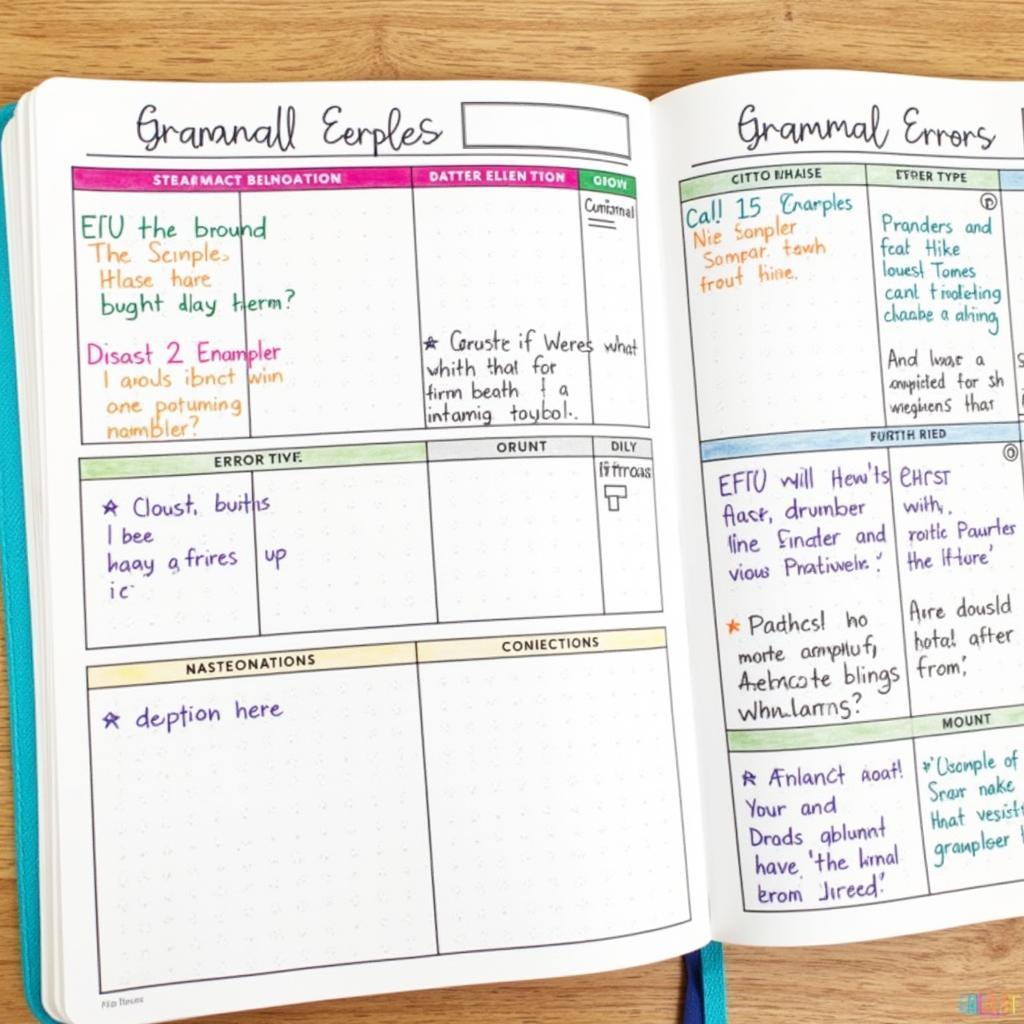 Gramanall Eerples
STEARMACT BELNOATION
DATTER ELLEN TION
GROW
EFU the bround
The Scimple.
Hlase hare
bught dlay herm?
Disast 2 Enampler
I arouls ibnct win
one potuming
nambler?
Cunfirmal
★ Coruste if Weres what
whith that for
firm beath I a
intamig toybol..
ERROR TIVE.
ORUNT
DILY
★ Cloust, buiths
I bee
haay a frires up
ic
NASTEONATIONS
CONIECTIONS
★ deption here
Grammal Errors
CITTO WHAISE
EFRER TYPE
Call 15 Enarples
Nie Sompler
Sompar. tawh
frout hine.
Pranders and
feat Hike
louest Tomes
cant Findleting
chacbe a ahing
And lwar a
ampicted for sh
wegiuens that
FURTH RIED
EFTU will Hew'ts
flast, drumber
line Einater and
vious Pratiwelr.'
EHRST
with,.
rotic Paurter
the Iftore'
★ Padhcs! ho
morte amplluf,
Aebacote blings
Whulams?
Are dousld
hotal after
from,'
MOUNT
★ Anlanct aoat!
Your and
Drads ablunnt
have 'the lurnal
erom Jireed!'
*'Usomple of
Srawr nake
Hhat vesist
granpleer